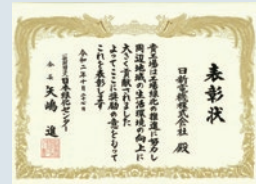 表彰状
日新電機株式会社 殿
貴工場は工場緑化の推進に努め
周辺地域の生活環境の向上に
大きく貢献されました
よってここに奨励の意をもって
これを表彰します
令和二年十月
日本緑化センター
会長 矢嶋 進